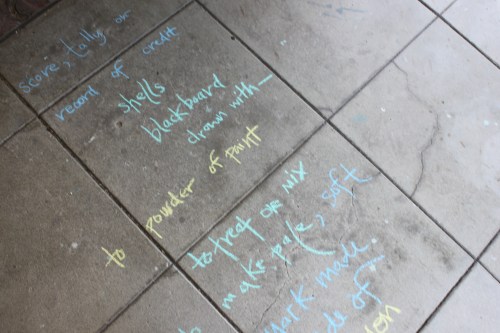 score, tally or
record of credit
shells
blackboard
drawn with—
to powder of paint
to treat or mix
make pale, soft
mark made
de of
on